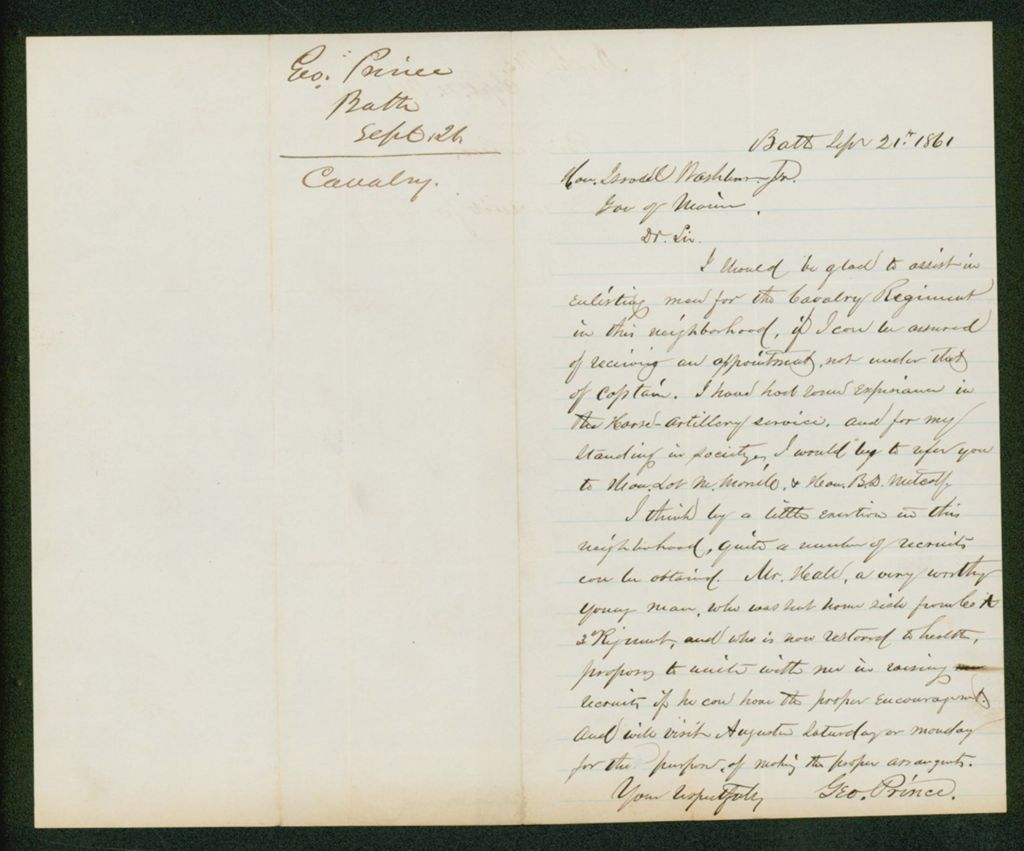 Geo. Prince
Bath
Sept. 21.
Cavalry.
Bath Sepr 21st 1861
Hon. Israel Washburn Jr.
Gov of Maine.
Dr. Sir.
I should be glad to assist in
enlisting men for the Cavalry Regiment
in this neighborhood, if I can be assured
of receiving an appointment, not under that
of Captain. I have had some experience in
the Horse-artillery service, and for my
standing in society, I would beg to refer you
to Hon. Lot M. Morill, & Hon. B.D. Metcalf.
I think by a little exertion in this
neighborhood, quite a number of recruits
can be obtained. Mr. Heald, a very worthy
young man, who was sent home sick from Co A
3d Regiment, and who is now restored to health,
proposes to unite with me in raising
recruits if he can have the proper encouragement.
and will visit Augusta Saturday or monday
for the purpose of making the proper arrangmts.
Your respectfully Geo. Prince.